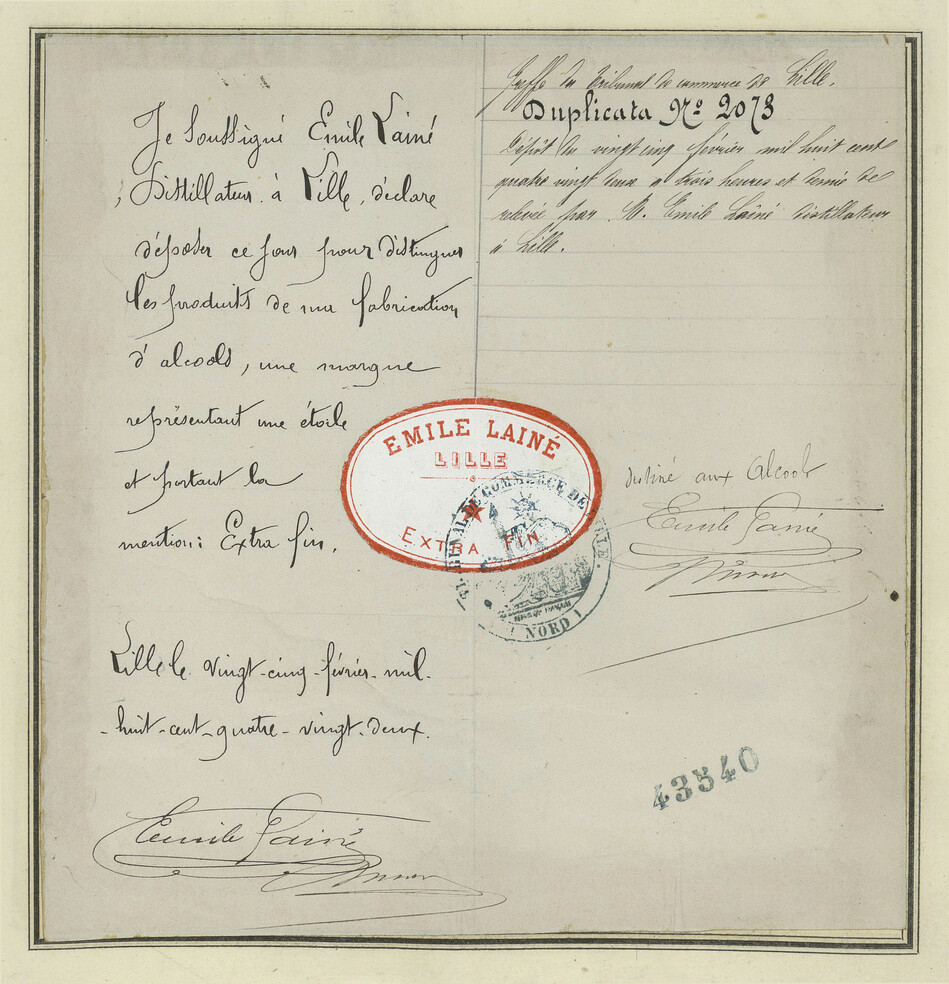 Je soussigné Emile Lainé
Distillateur à Lille, déclare
déposer ce jour pour distinguer
les produits de ma fabrication
d'alcools, une marque
représentant une étoile
et portant la
mention: Extra fin.
Lille le vingt-cinq-février-mil-
-huit-cent-quatre-vingt-deux.
Emile Lainé
Greffe du Tribunal de commerce de Lille.
Duplicata Nº 2073
Dépôt du vingt cinq février mil huit cent
quatre vingt deux à trois heures et demie de
relevée par M. Emile Lainé distillateur
à Lille.
EMILE LAINÉ
LILLE
EXTRA FIN
TRIBUNAL DE COMMERCE DE LILLE.
NORD
destiné aux Alcools
Emile Lainé
43540